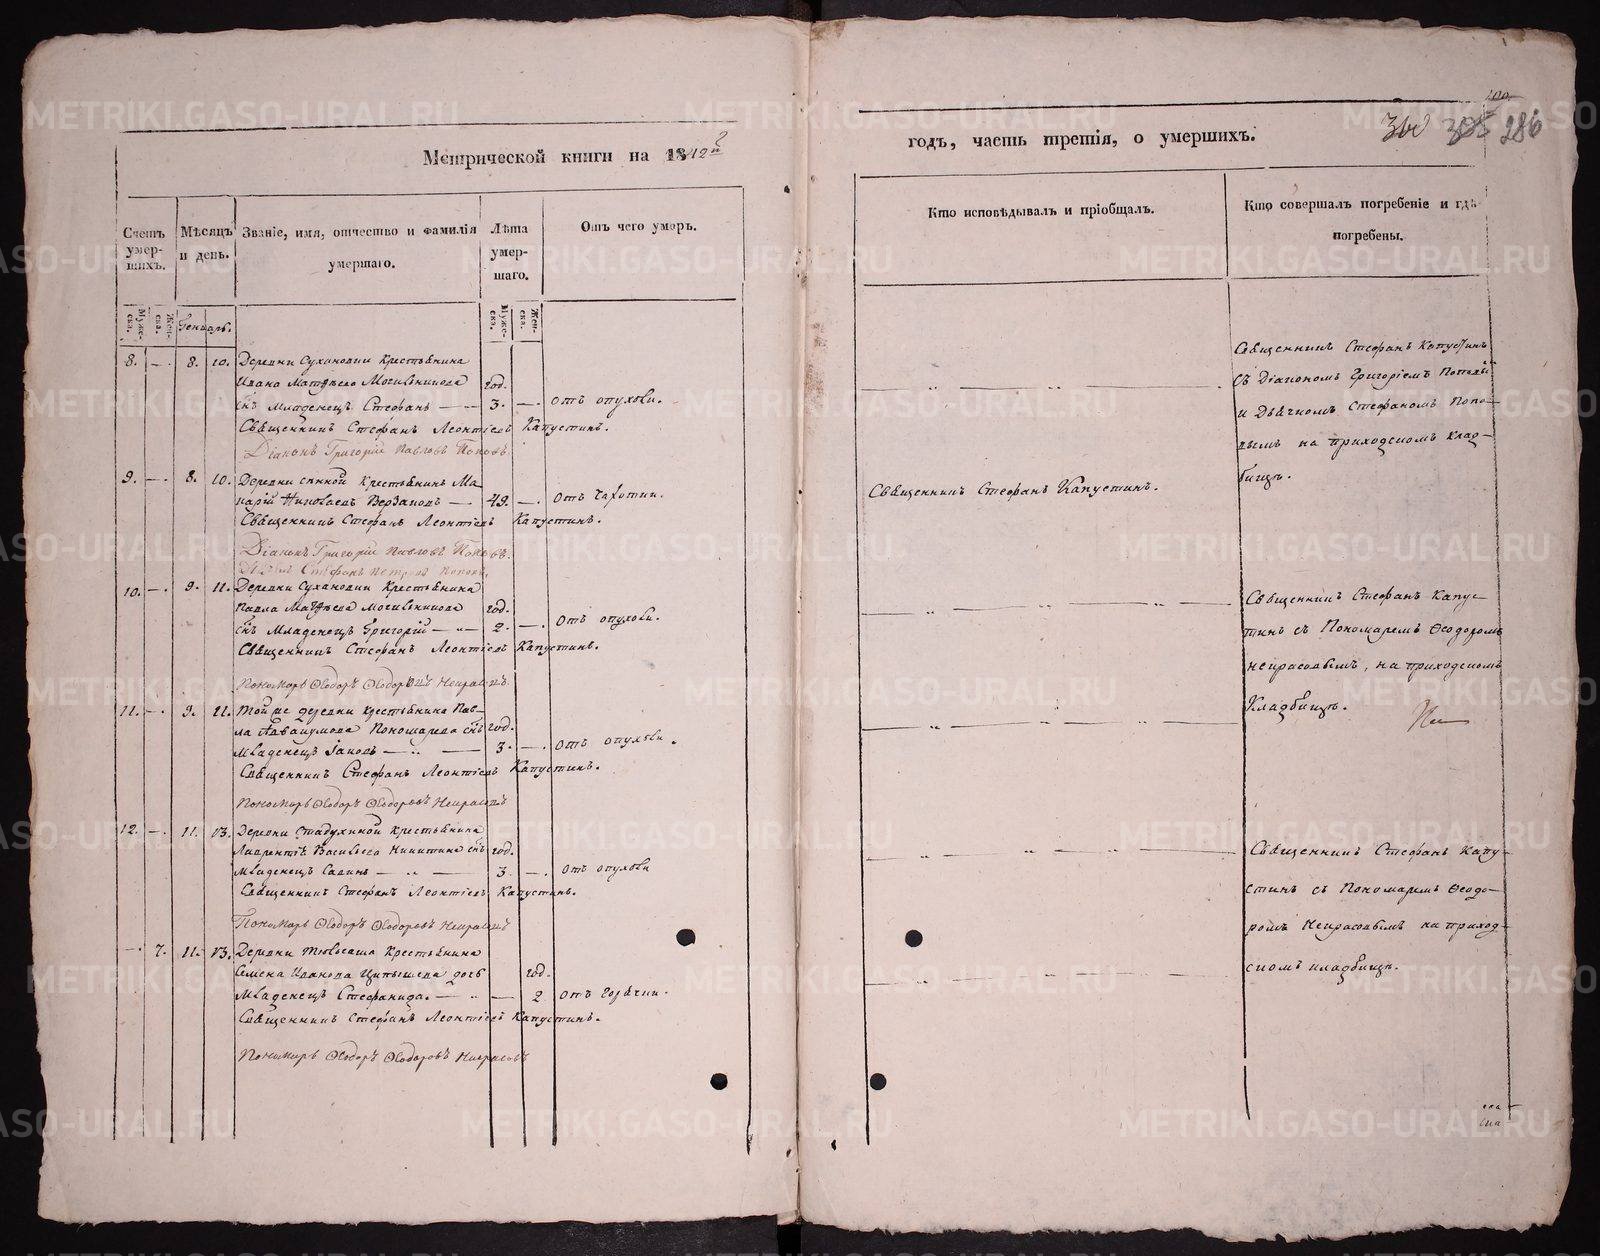 Метрической книги на 1842й
Счетъ умершихъ.
Муже-ска.
Жен-ска.
Мѣсяцъ и день.
Званіе, имя, отчество и фамилія умершаго.
Лѣта умер-шаго.
Муже-ска.
Жен-ска.
Отъ чего умеръ.
Генварь.
8. —. 8. 10. Деревни Сухановки крестьянина
Ивана Матѳеева Могильникова год.
сн҃ъ младенецъ Стефанъ — 3. —. отъ опухоли.
Священникъ Стефанъ Леонтіевъ Капустинъ.
Діаконъ Григорій Павловъ Поповъ
9. —. 8. 10. Деревни крестьянинъ Ма-
карій Николаевъ — 49. —. отъ чахотки.
Священникъ Стефанъ Леонтіевъ Капустинъ.
Діаконъ Григорій Павловъ Поповъ.
Стефанъ Петровъ Поповъ.
10. —. 9. 11. Деревни Сухановки крестьянина
Павла Матѳеева Могильникова год.
сн҃ъ младенецъ Григорій — „ — 2. —. отъ опухоли.
Священникъ Стефанъ Леонтіевъ Капустинъ.
Пономарь Ѳеодоръ Ѳеодоровъ Некрасовъ.
11. —. 9. 11. Той же деревни крестьянина Пав-
ла Аввакумова Пономарева сн҃ъ год.
младенецъ Іаковъ — „ — 3. —. отъ опухоли.
Священникъ Стефанъ Леонтіевъ Капустинъ.
Пономарь Ѳеодоръ Ѳеодоровъ Некрасовъ
12. —. 11. 13. Деревни Стадухиной крестьянина
Лаврентія Васильева Никитина сн҃ъ год.
младенецъ Савинъ — „ — 3. —. отъ опухоли
Священникъ Стефанъ Леонтіевъ Капустинъ.
Пономарь Ѳеодоръ Ѳеодоровъ Некрасовъ
—. 7. 11. 13. Деревни крестьянина
Семена Иванова дочь год.
младенецъ Стефанида. — „ — 2 отъ горячки.
Священникъ Стефанъ Леонтіевъ Капустинъ.
Пономарь Ѳеодоръ Ѳеодоровъ Некрасовъ
годъ, часть третія, о умершихъ.
286
Кто исповѣдывалъ и пріобщалъ.
Кто совершалъ погребеніе и гдѣ погребены.
Священникъ Стефанъ Капустинъ
съ Діакономъ Григоріемъ Поповы
и Дьячкомъ Стефаномъ Попо-
вымъ на приходскомъ клад-
бищѣ.
Священникъ Стефанъ Капустинъ.
Священникъ Стефанъ Капус-
тинъ съ Пономаремъ Ѳеодоромъ
Некрасовымъ, на приходскомъ
кладбищѣ.
Священникъ Стефанъ Капу-
стинъ съ Пономаремъ Ѳеодо-
ромъ Некрасовымъ на приход-
скомъ кладбищѣ.
METRIKI.GASO-URAL.RU